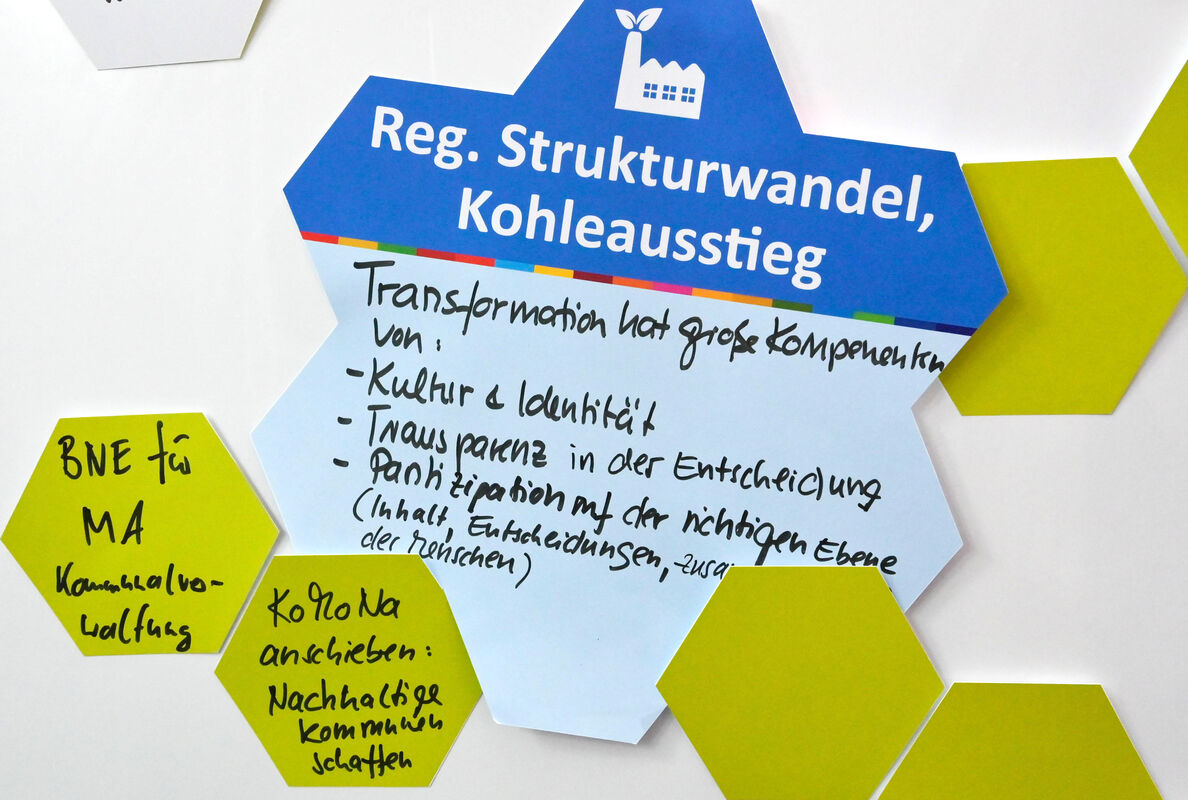 Reg. Strukturwandel,
Kohleausstieg
Transformation hat große Kompenenten
von:
- Kultur & Identität
- Transparenz in der Entscheidung
- Partizipation auf der richtigen Ebene
(Inhalt, Entscheidungen,
der Menschen)
BNE für
MA
Kommunalver-
waltung
KoMoNa
anschieben:
Nachhaltige
Kommunen
schaffen